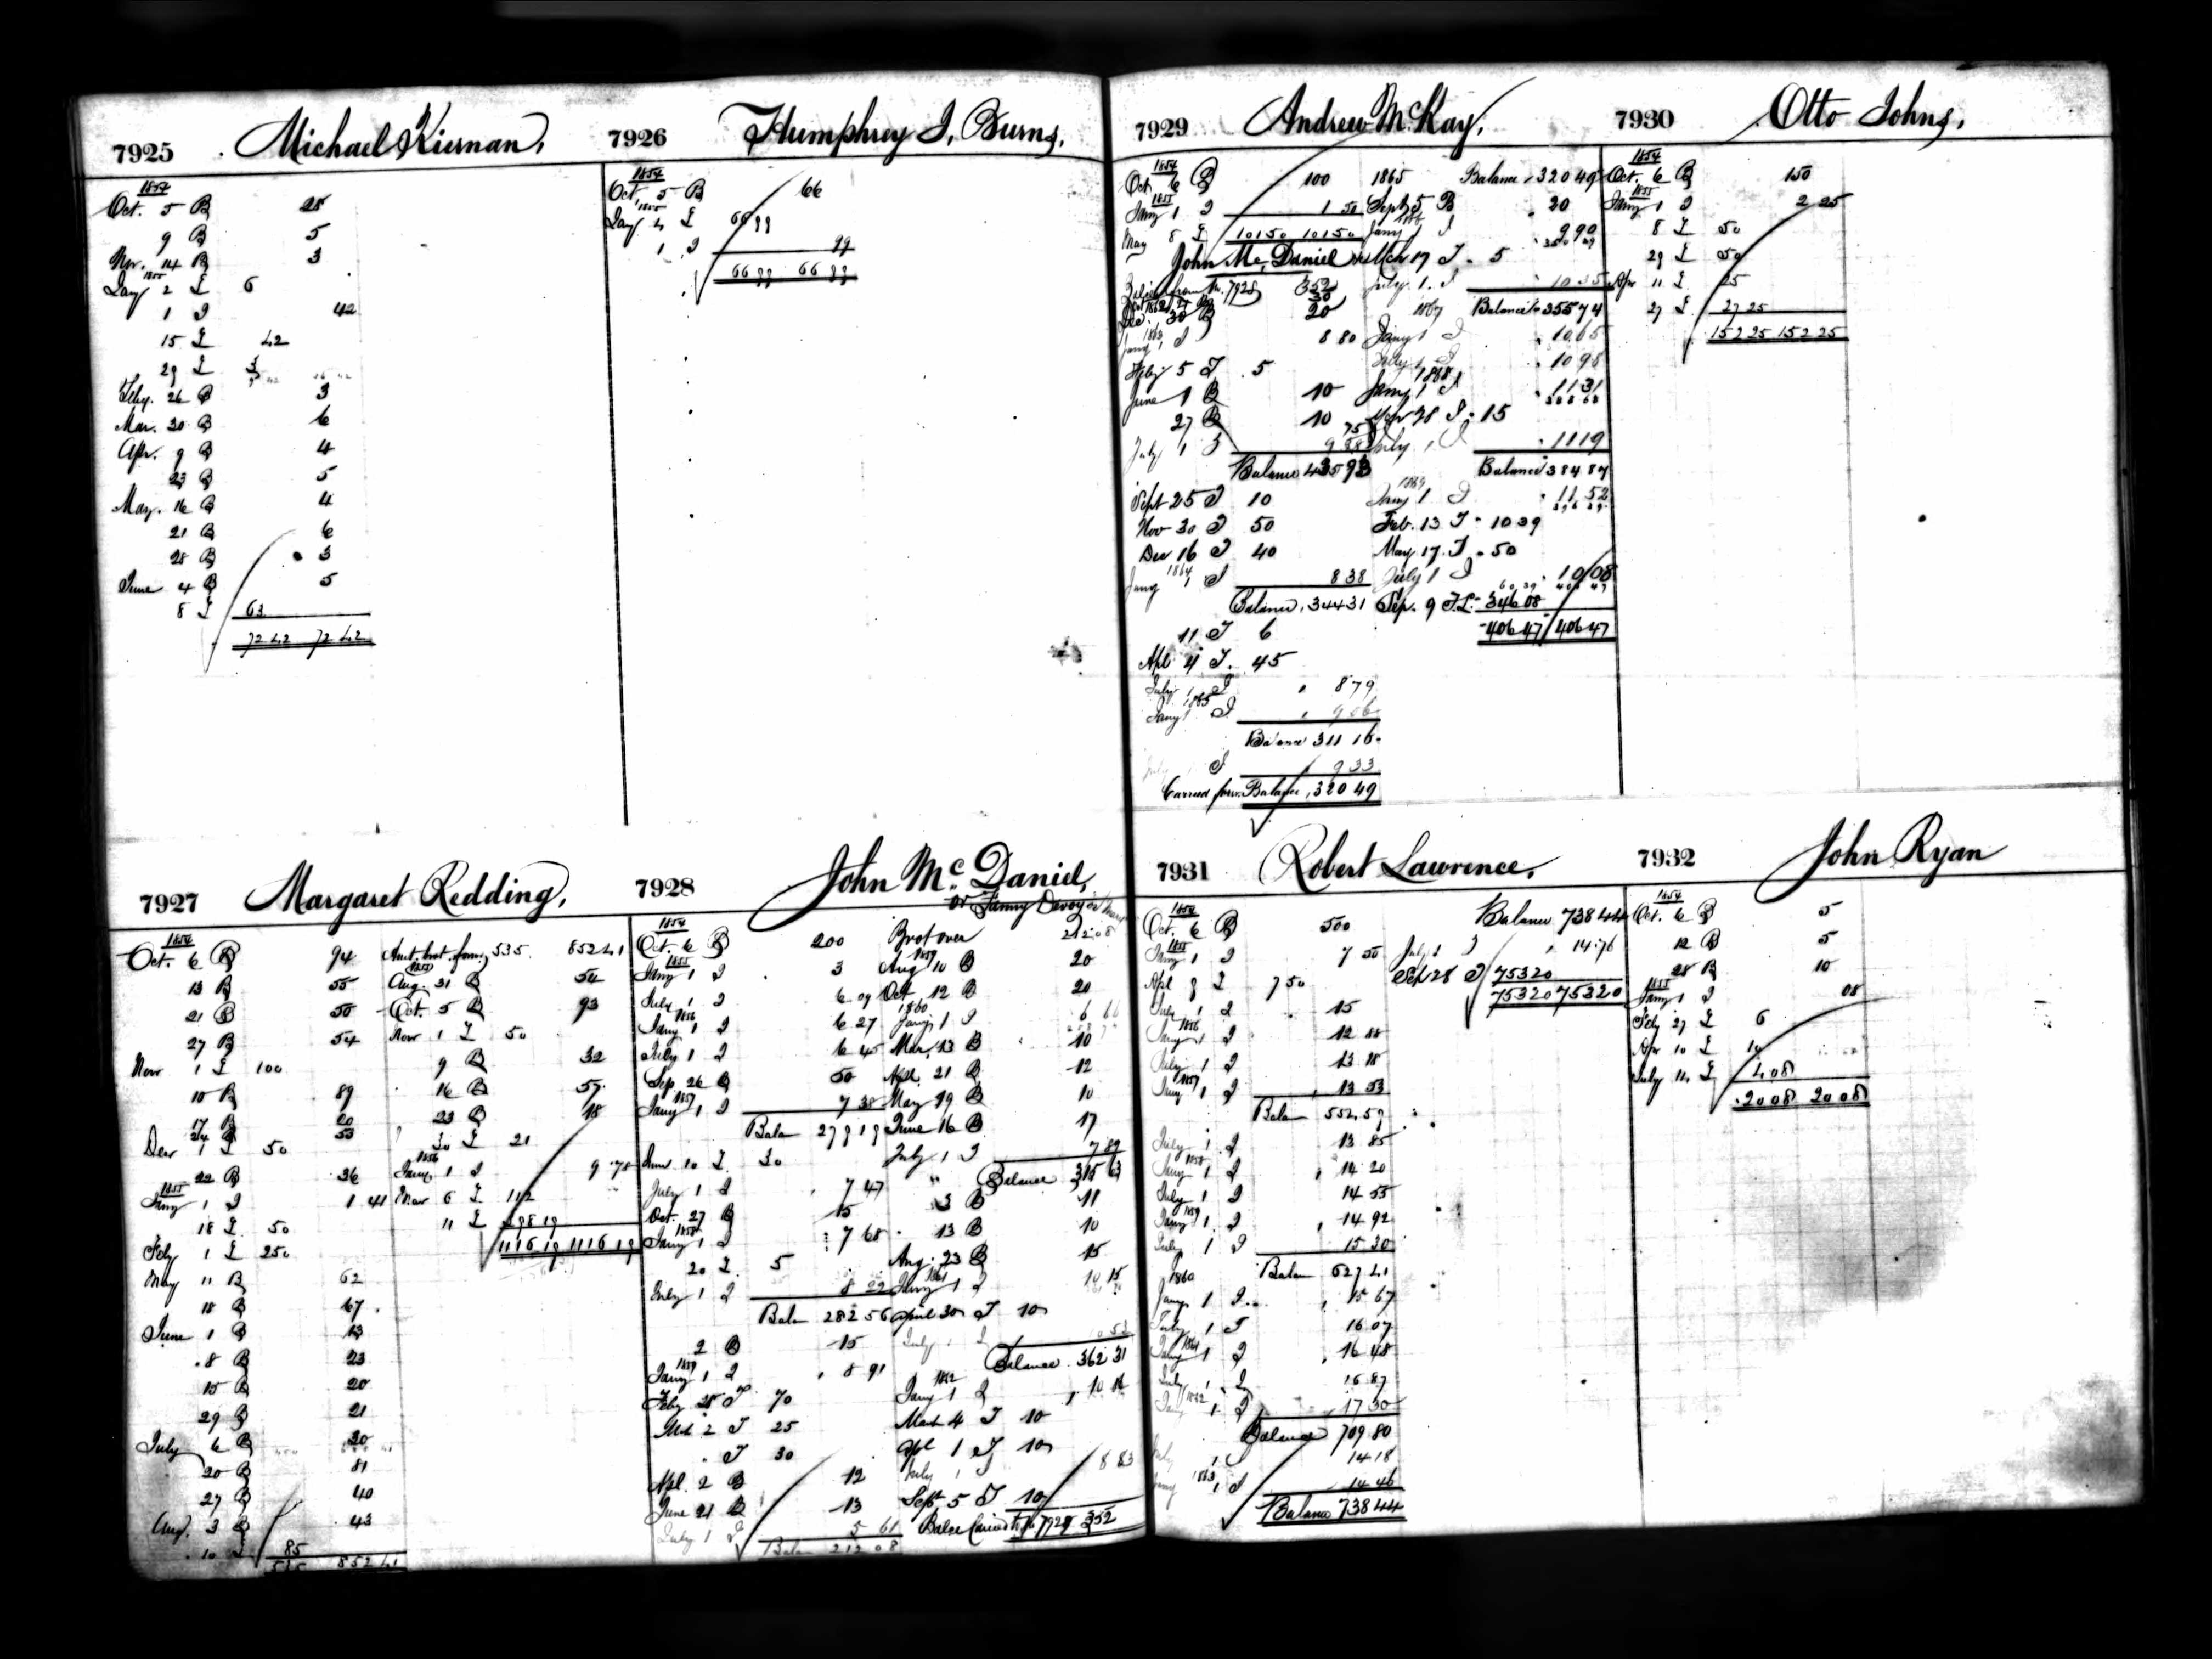 7925 Michael Kiernan,
1854
Oct. 5 B 25
9 B 5
Nov. 14 B 3
1855
Jany 2 I 6
1 I 42
15 I 42
29 I 3
Feby. 26 B 3
Mar. 20 B 6
Apr. 9 B 4
23 B 5
May. 16 B 4
21 B 6
28 B 3
June 4 B 5
8 I 63
72 42 72 42
7926 Humphrey J. Burns,
1854
Oct. 5 B 66
1855
Jany 4 I 66 99
1 I 99
66 99 66 99
7927 Margaret Redding,
1854
Oct. 6 B 94
13 B 55
21 B 50
27 B 54
Nov 1 I 100
10 B 89
17 B 20
24 B 53
Decr 1 I 50
22 B 36
1855
Jany 1 I 1 41
18 I 50
Feby 1 I 250
May 11 B 62
18 B 67
June 1 B 13
8 B 23
15 B 20
29 B 21
July 6 B 30
20 B 81
27 B 40
Aug. 3 B 43
10 I 85
535 852 41
Amt. brot. forw. 535 852 41
1855
Aug. 31 B 54
Oct. 5 B 93
Novr 1 I 50
9 B 32
16 B 57
23 B 18
30 I 21
1856
Jany 1 I 9 78
Mar 6 I 112
11 I 398 19
1116 19 1116 19
7928 John Mc. Daniel,
or Fanny Devoy
1854
Oct. 6 B 200
1855
Jany 1 I 3
July 1 I 6 09
1856
Jany 1 I 6 27
July 1 I 6 45
Sep. 26 B 50
1857
Jany 1 I 7 38
Balan 279 19
June 10 I 30
July 1 I 7 47
Oct. 27 B 15
1858
Jany 1 I 7 68
20 I 5
July 1 I 8 22
Balan 282 56
2 B 15
1859
Jany 1 I 8 91
Feby 25 I 70
Mch 2 I 25
I 30
Apl. 2 B 12
June 21 B 13
July 1 I 5 61
Balan 212 08
Brot over 212 08
1859
Aug 10 B 20
Oct 12 B 20
1860
Jany 1 I 6 66
Mar. 13 B 10
Apl. 21 B 12
May 19 B 10
June 16 B 17
July 1 I 7 89
Balance 315 63
" 3 B 11
13 B 10
Aug. 23 B 15
1861
Jany 1 I 10 15
April 30 I 10
July 1 I
Balance 362 31
1862
Jany 1 I 10 86
March 4 I 10
Apl 1 I 10
July 1 I 8 83
Sept. 5 I 10
Balce Carried to No 7929 352
7929 Andrew McKay,
1854
Oct 6 B 100
1855
Jany 1 I 1 50
May 8 I 101 50 101 50
John Mc, Daniel
Balce from No. 7928 352
30
Dec. 30 B 20
1863
Jany 1 I 8 80
Feby 5 I 5
June 1 B 10
27 B 10
July 1 I
Balance 435 93
Sept 25 I 10
Nov 30 I 50
Dec 16 I 40
1864
Jany 1 I 8 38
Balance 344 31
11 I 6
Apl 4 I 45
July 1 I 8 79
1865
Jany 1 I 9 06
Balance 311 16
July I 9 33
Carried forw. Balance 320 49
1865 Balance 320 49
Sept 5 B 20
1866
Jany 1 I 9 90
Mch 17 I 5
July 1 I 10 35
1867 Balance 355 74
Jany 1 I 10 65
July 1 I 10 98
1868
Jany 1 I 11 31
Mar 28 I 15
July 1 I 11 19
Balance 384 87
1869
Jany 1 I 11 52
Feb. 13 I 10 39
May 17 I 50
July 1 I 10 08
Sep. 9 I 346 08
406 47 406 47
7930 Otto Johns,
1854
Oct. 6 B 150
1855
Jany 1 I 2 25
8 I 50
29 I 50
Apr 11 I 25
27 I 27 25
152 25 152 25
7931 Robert Lawrence,
1854
Oct. 6 B 500
1855
Jany 1 I 7 50
Apl 9 I 7 50
July 1 I 15
1856
Jany 1 I 12 88
July 1 I 13 18
1857
Jany 1 I 13 53
Balan 554 59
July 1 I 13 85
1858
Jany 1 I 14 20
July 1 I 14 55
1859
Jany 1 I 14 92
July 1 I 15 30
Balan 627 41
1860
Jany 1 I 15 67
July 1 I 16 07
1861
Jany 1 I 16 48
July 1 I 16 87
1862
Jany 1 I 17 30
Balance 709 80
July 1 I 14 18
1863
Jany 1 I 14 46
Balance 738 44
Balance 738 44
July 1 I 14 76
Sep 28 I 753 20
753 20 753 20
7932 John Ryan
1854
Oct. 6 B 5
12 B 5
28 B 10
1855
Jany 1 I 08
Feby 27 I 6
Apr 10 I 10
July 14 I 4 08
20 08 20 08